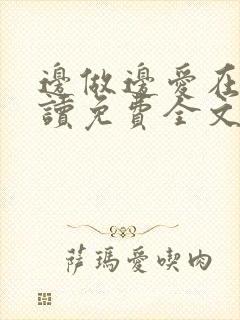 邊做邊愛在
讀免費全文
萨瑪愛喫肉